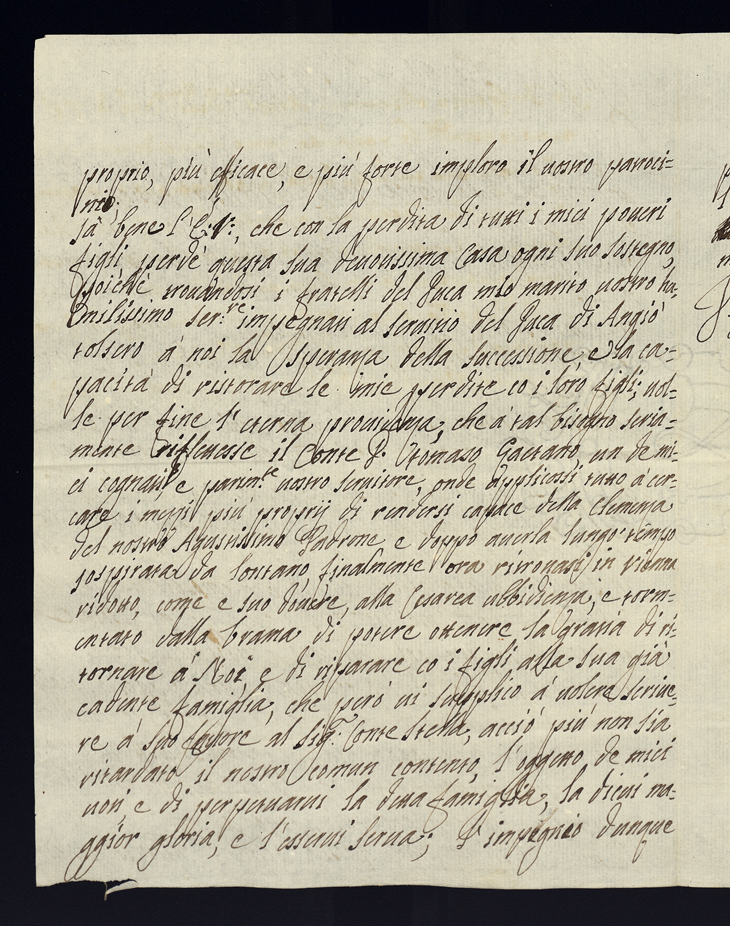 proprio, più efficace, e più forte imploro il uostro patroci=
nio.
Sà bene l'E: V:, che con la perdita di tutti i miei poueri
figli perdè questa sua deuotissima Casa ogni suo sostegno,
poichè trouandosi i fratelli del Duca mio marito uostro hu=
milissimo ser:re impegnati al seruitio del Duca di Angiò
tolsero à noi la speranza della successione, e la ca=
pacità di ristorare le mie perdite co i loro figli; uol=
le per fine l'eterna prouidenza, che à tal bisogno seria=
mente riflettesse il Conte D. Tomaso Gaetano, un de mi=
ei cognati, e parim:te uostro seruitore, onde applicossi tutto à cer=
care i mezzi più proprij di rendersi capace della Clemenza
del nostro Agustissimo Padrone e doppo auerla lungo tempo
sospirata da lontano, finalmente ora ritrouasi in Vienna
ridotto, come e suo douere, alla Cesarea ubbidienza, e torm=
entato dalla brama di potere ottenere la Gratia di ri=
tornare à Noi, e di riparare co i figli alla sua già
cadente famiglia, che però ui supplico à uolere scriue=
re à suo fauore al Sig.r Conte Stella, acciò più non sia
ritardato il nostro comun contento, l'oggetto de miei
uoti, e di perpetuarui la detta famiglia, la dicui ma=
ggior gloria, e l'esserui serua; L'impegnio dunque